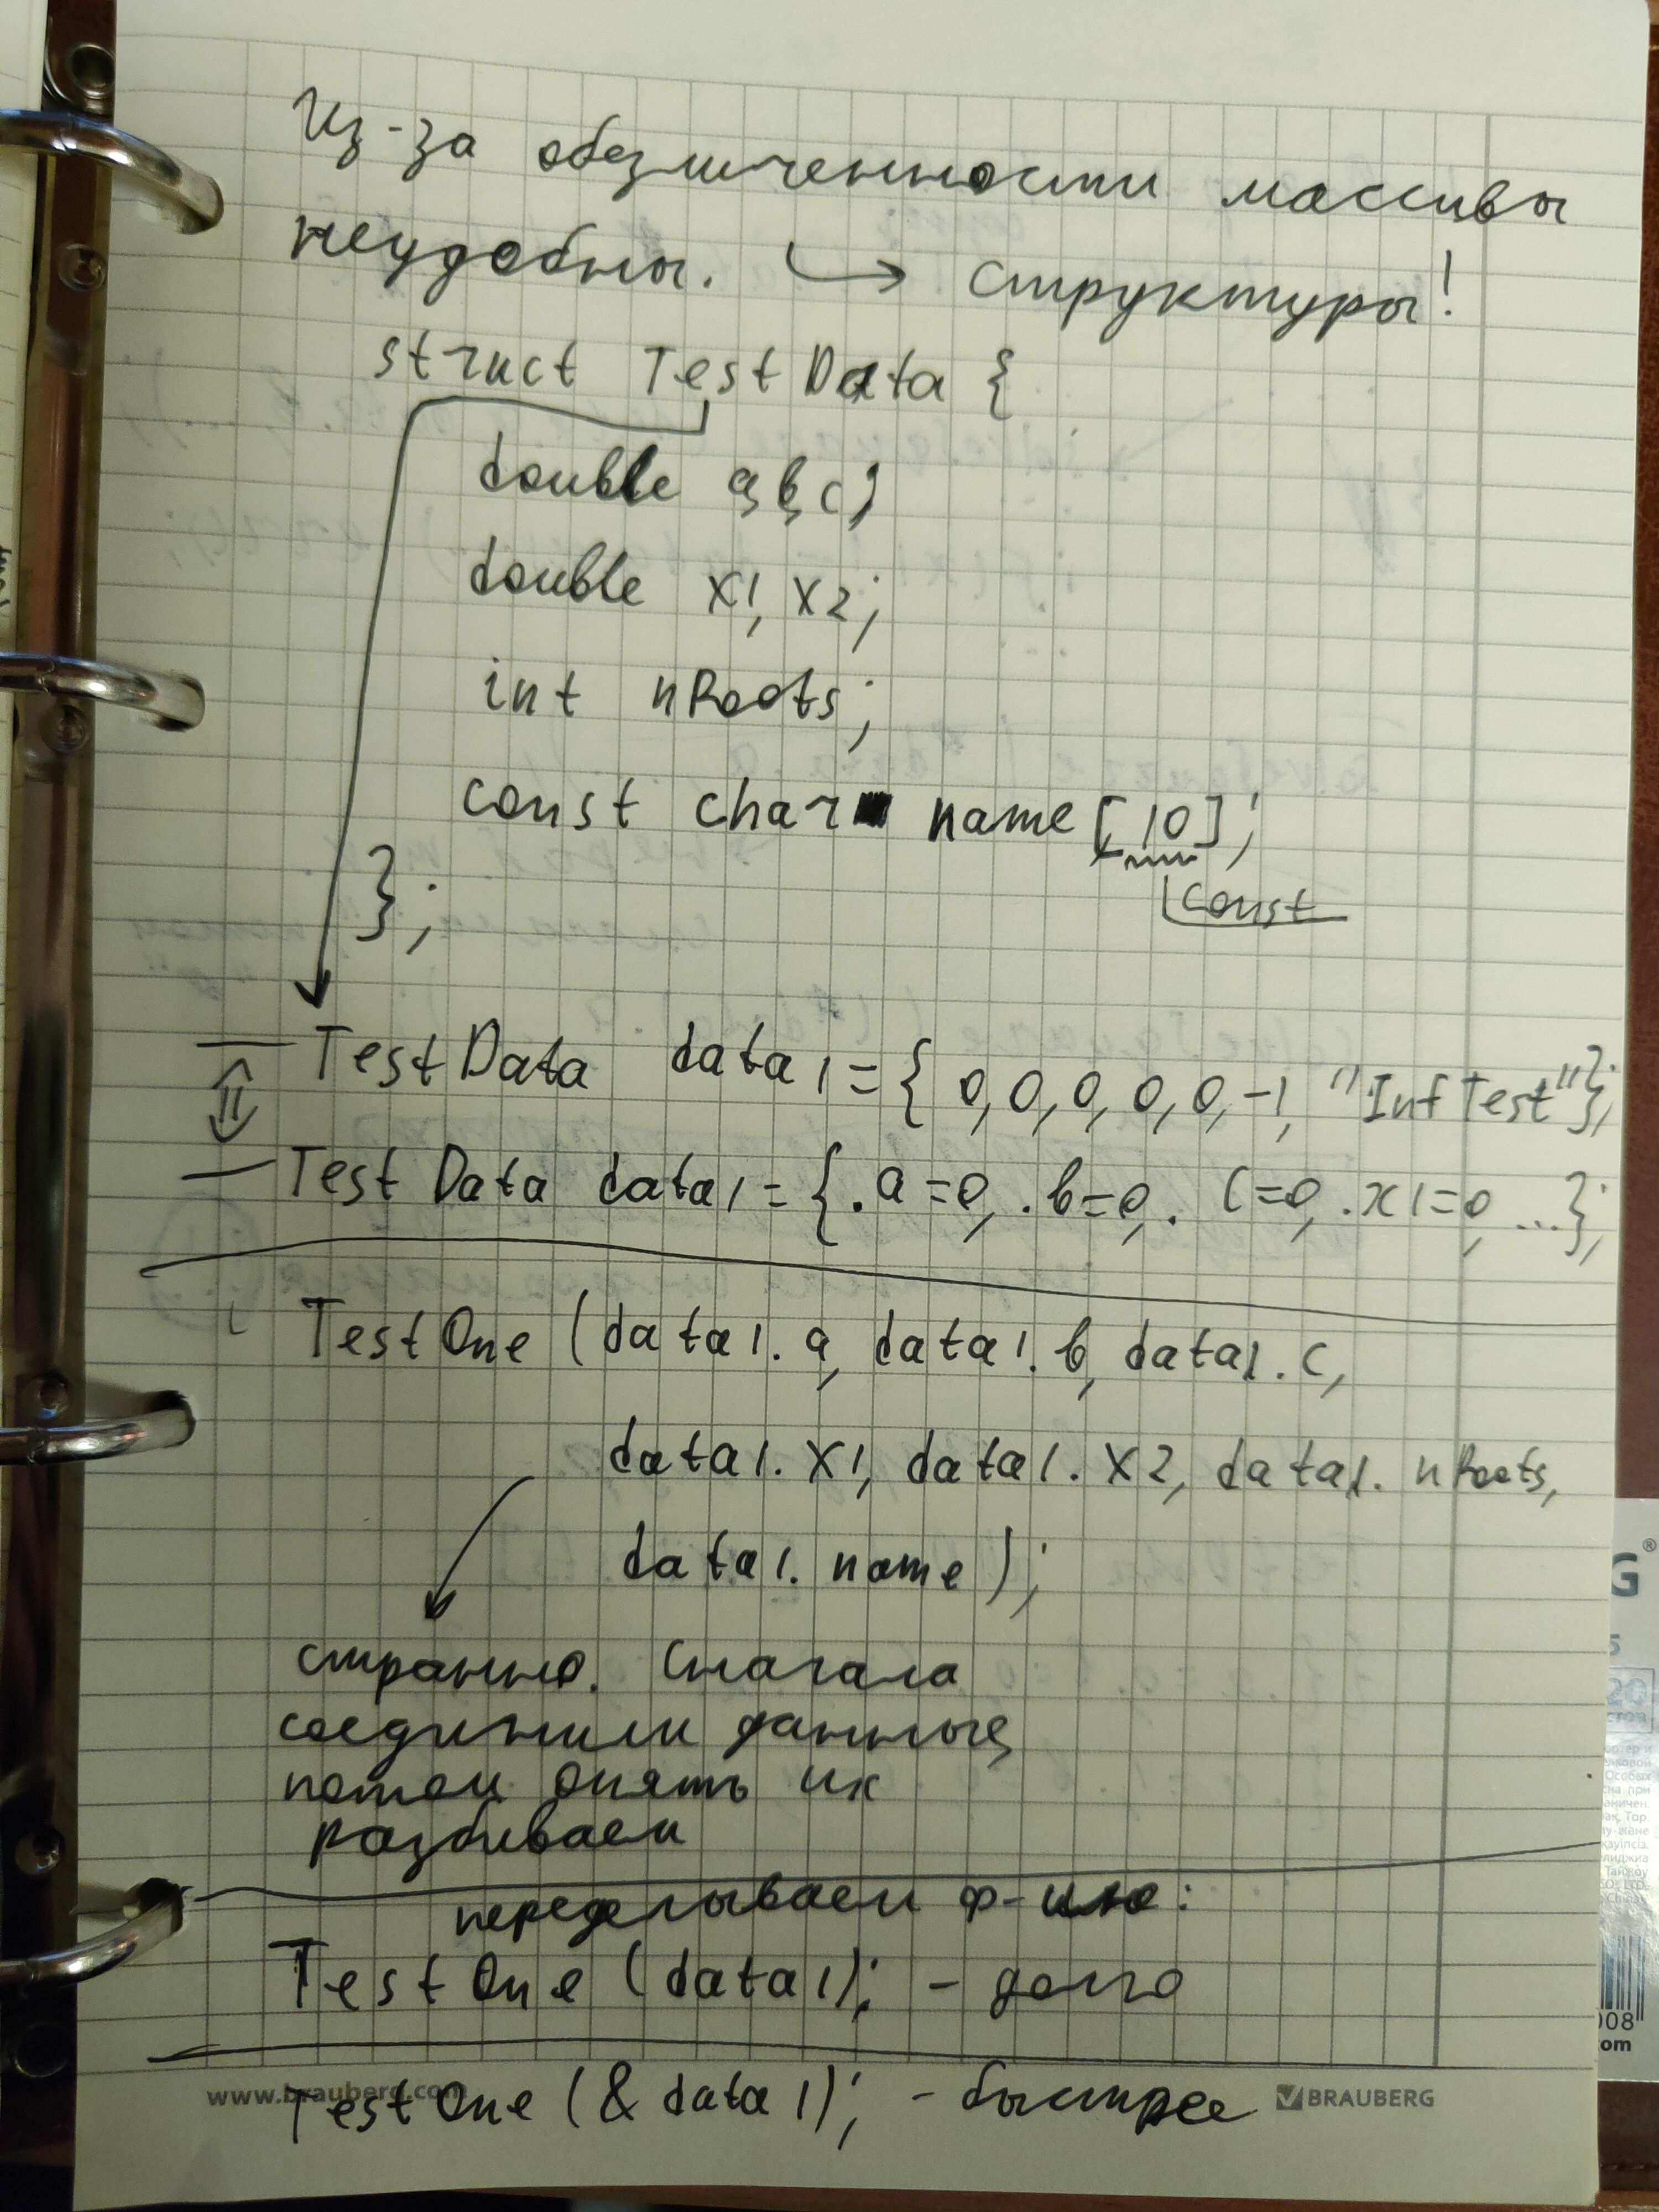 Из-за обезличенности массивы
неудобны. ↳ структуры!
struct TestData {
double a, b, c;
double x1, x2;
int nRoots;
const char name [10];
const
};
TestData data1 = { 0, 0, 0, 0, 0, -1, "InfTest"};
TestData data1 = {.a=0, .b=0, .c=0, .x1=0, ...};
TestOne (data1.a, data1.b, data1.c,
data1.x1, data1.x2, data1.nRoots,
data1.name);
странно. Сначала
соединили данные,
потом опять их
разбиваем
переделываем ф-цию:
TestOne (data1); - долго
TestOne (&data1); - быстрее
www.brauberg.com
BRAUBERG